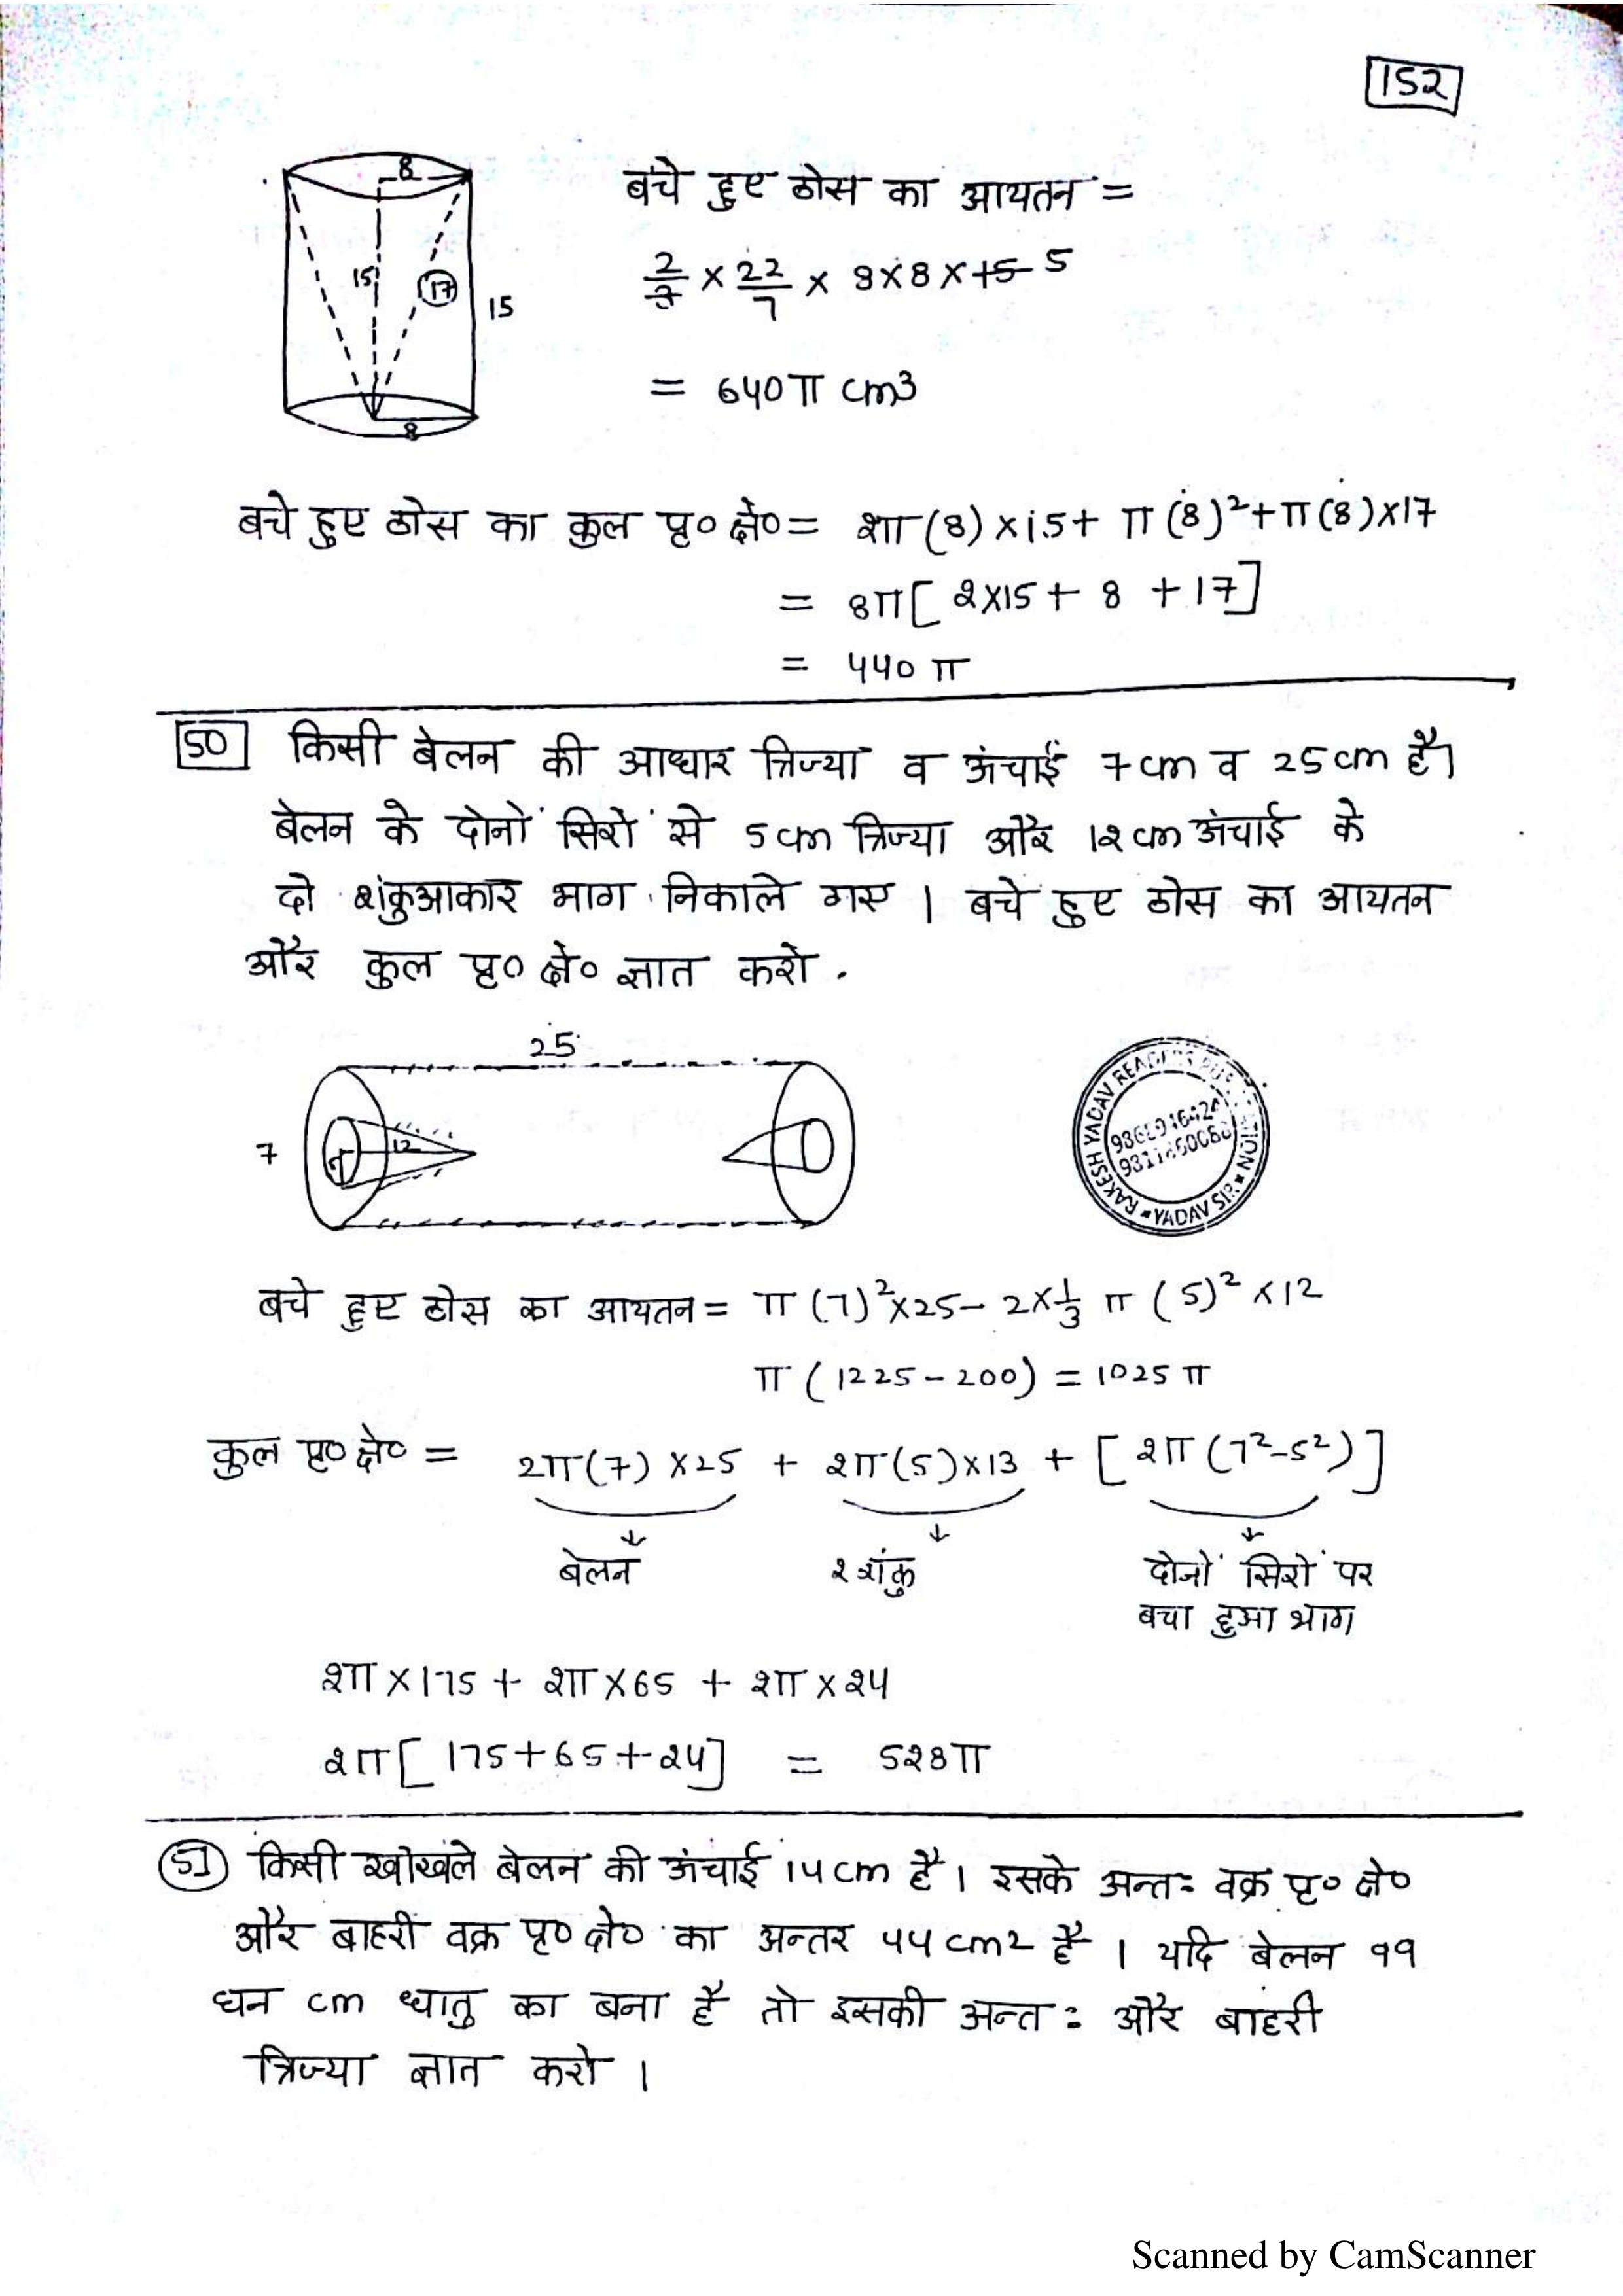 152
8
15
17
15
8
बचे हुए ठोस का आयतन =
2/3 × 22/7 × 8×8×15 5
= 640π cm3
बचे हुए ठोस का कुल पृ० क्षे० = 2π(8)×15+ π(8)²+π(8)×17
= 8π[2×15+ 8 +17]
= 440 π
50 किसी बेलन की आधार त्रिज्या व ऊंचाई 7cm व 25cm है।
बेलन के दोनों सिरों से 5cm त्रिज्या और 12cm ऊंचाई के
दो शंकुआकार भाग निकाले गए । बचे हुए ठोस का आयतन
और कुल पृ० क्षे० ज्ञात करो .
25
7
12
RAKESH YADAV READERS
YADAV SIR
बचे हुए ठोस का आयतन = π(7)²×25– 2×1/3 π (5)² ×12
π (1225 – 200) = 1025 π
कुल पृ० क्षे० = 2π(7) ×25 + 2π(5)×13 + [2π(7²–5²)]
बेलन 2 शंकु दोनों सिरों पर
बचा हुआ भाग
2π×175 + 2π×65 + 2π×24
2π[175+65+24] = 528π
51 किसी खोखले बेलन की ऊंचाई 14cm है । इसके अन्तः वक्र पृ० क्षे०
और बाहरी वक्र पृ० क्षे० का अन्तर 44cm2 है । यदि बेलन 99
घन cm धातु का बना है तो इसकी अन्तः और बाहरी
त्रिज्या ज्ञात करो ।
Scanned by CamScanner